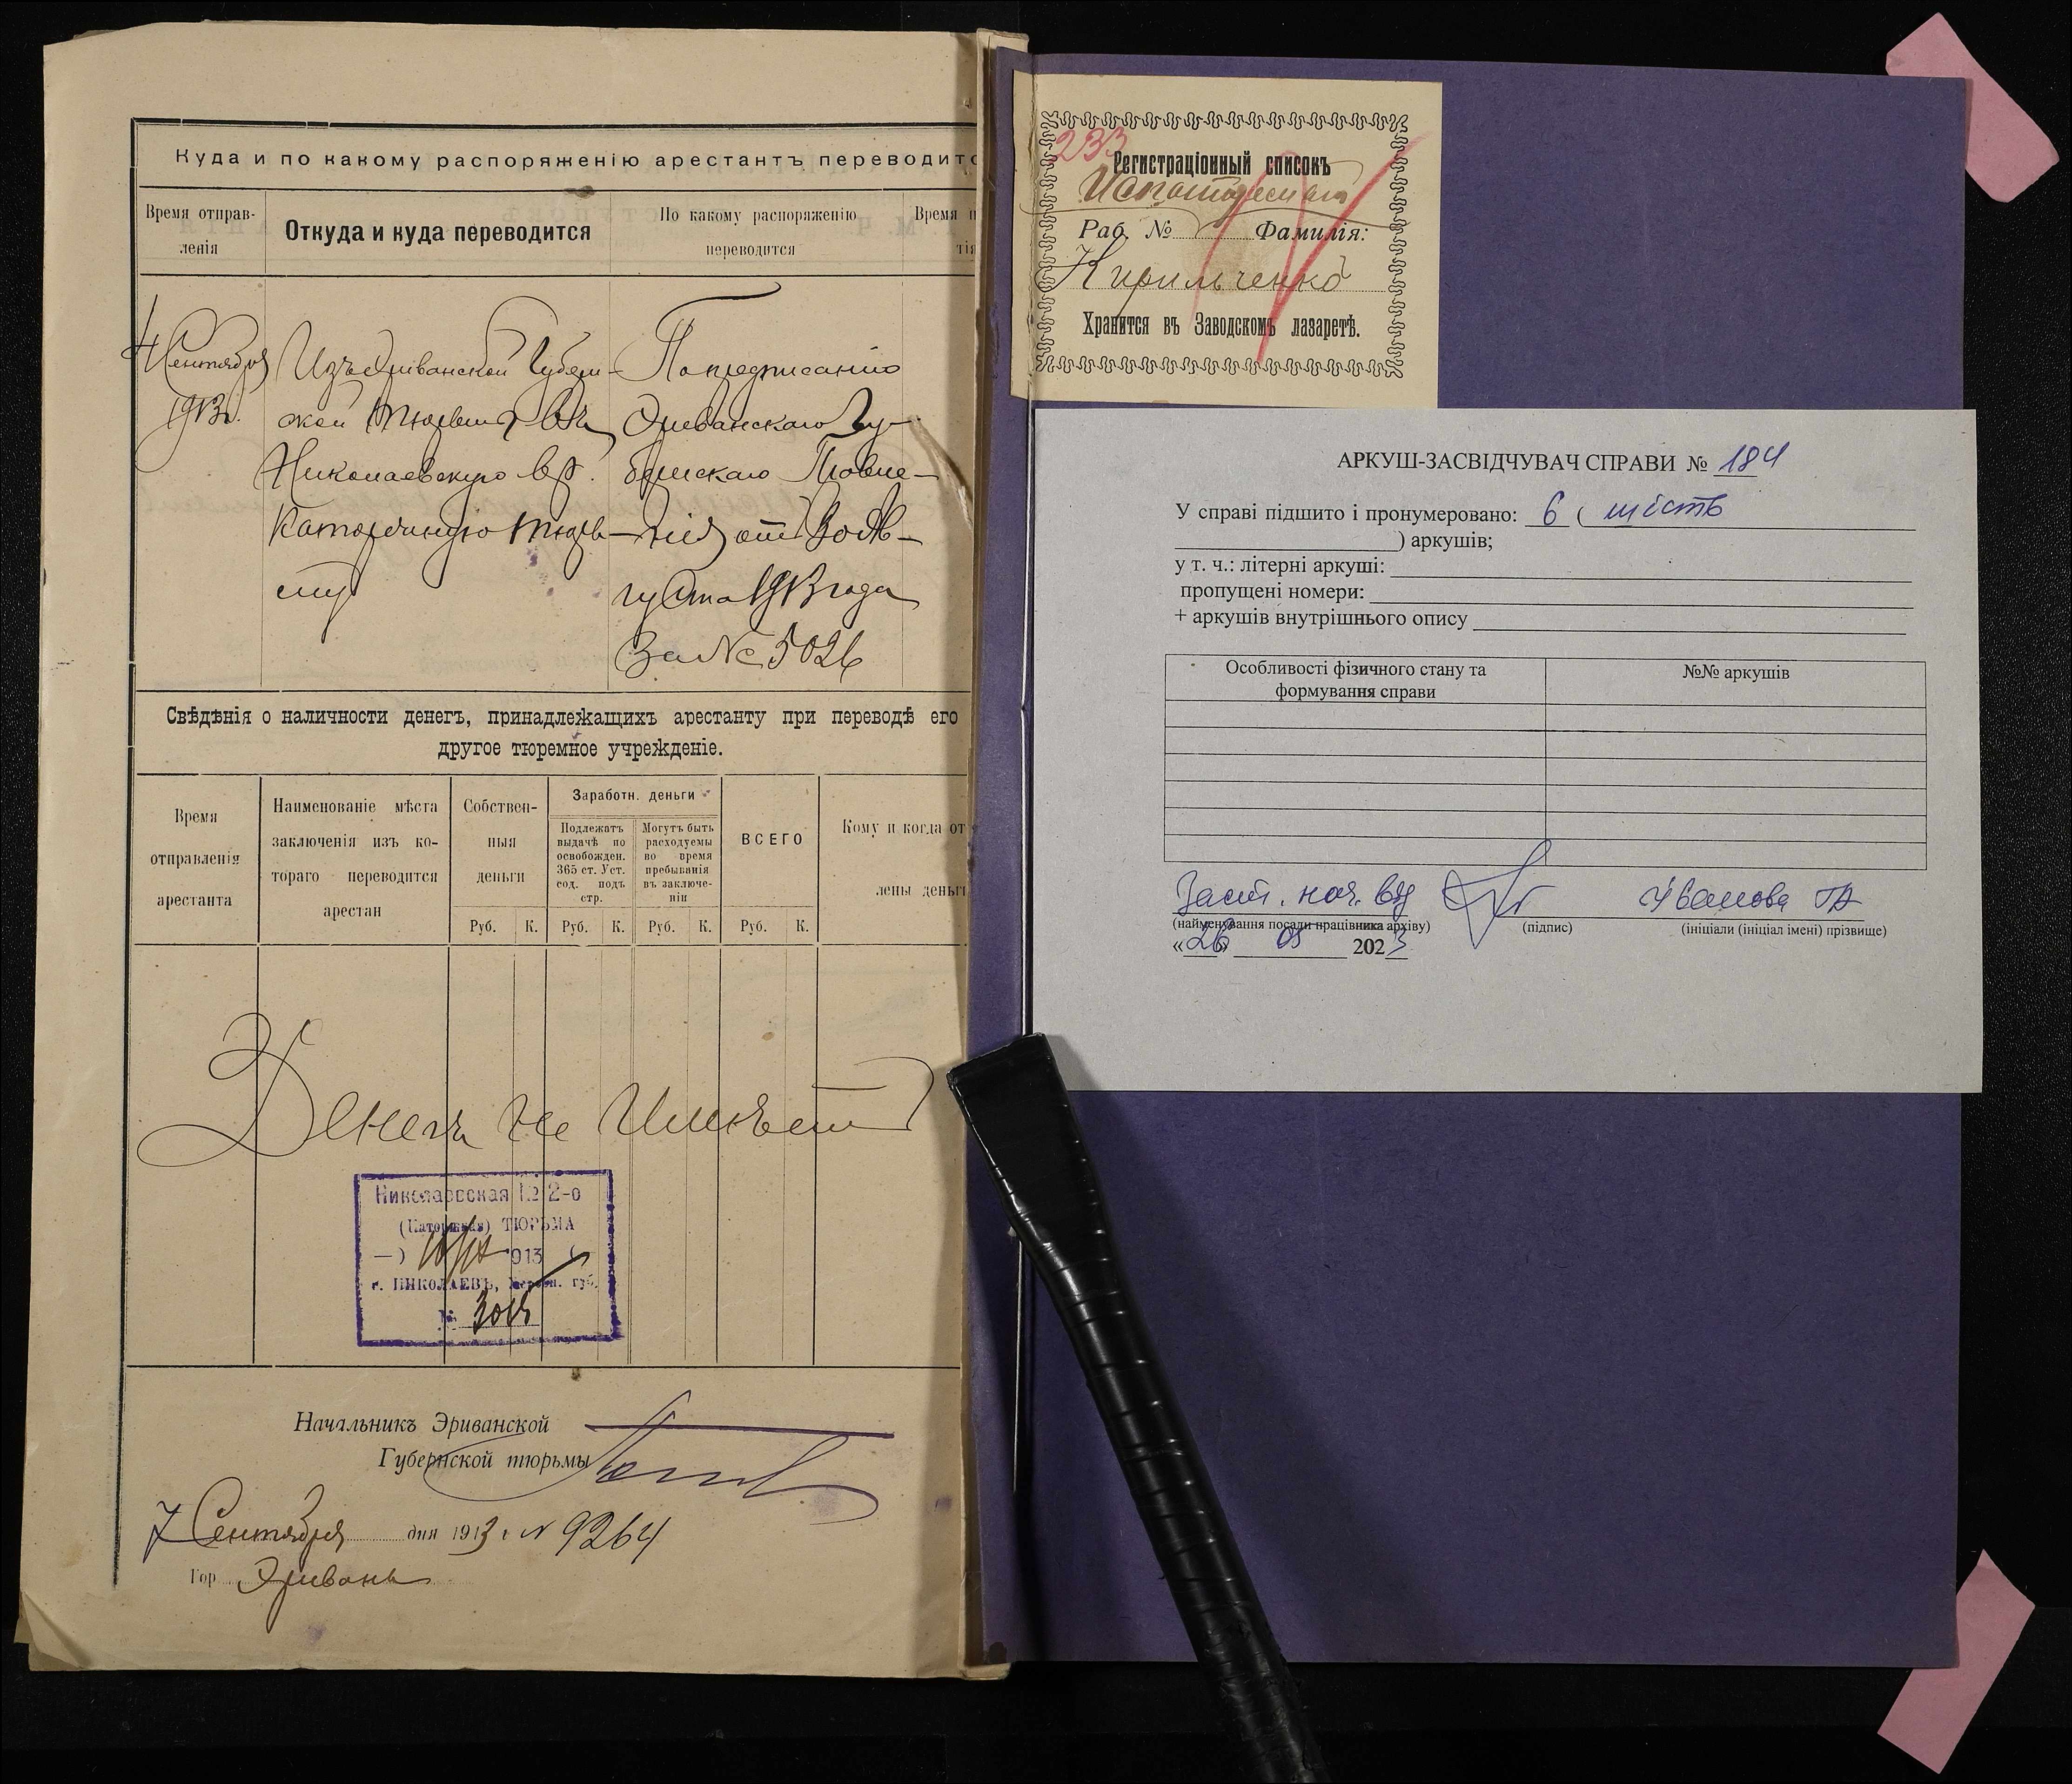 Куда и по какому распоряженію арестантъ переводитс
Время отправ-
ленія
Откуда и куда переводится
По какому распоряженію
переводится
Время п
тія
4 Сентября
1913г.
Изъ Эриванской Губерн-
ской тюрьмы въ
Николаевскую вр.
Каторжную тюрь-
му
По предписанію
Эриванскаго Гу-
бернскаго Правле-
нія отъ 30 Ав-
густа 1913 года
За № 5026
Свѣдѣнія о наличности денегъ, принадлежащихъ арестанту при переводѣ его
другое тюремное учрежденіе.
Время
отправленія
арестанта
Наименованіе мѣста
заключенія изъ ко-
тораго переводится
арестан
Собствен-
ныя
деньги
Заработн. деньги
Подлежатъ
выдачѣ по
освобожден.
365 ст. Уст.
сод. подъ
стр.
Могутъ быть
расходуемы
во время
пребыванія
въ заключе-
ніи
ВСЕГО
Кому и когда от
лены деньг
Руб. К. Руб. К. Руб. К. Руб. К.
Денегъ не имѣетъ
Николаевская № 2-о
(Каторжная) ТЮРЬМА
913
г. НИКОЛАЕВЪ, Херсон. губ.
№
Начальникъ Эриванской
Губернской тюрьмы
7 Сентября дня 1913 г № 9264
Гор. Эривань
233
Регистраціонный списокъ
Раб. № Фамилія:
Кирильченко
Хранится въ Заводскомъ лазаретѣ.
АРКУШ-ЗАСВІДЧУВАЧ СПРАВИ № 184
У справі підшито і пронумеровано: 6 ( шість
) аркушів;
у т. ч.: літерні аркуші:
пропущені номери:
+ аркушів внутрішнього опису
Особливості фізичного стану та
формування справи
№№ аркушів
Заст. нач. від Іванова
(найменування посади працівника архіву) (підпис) (ініціали (ініціал імені) прізвище)
«26» 05 2023